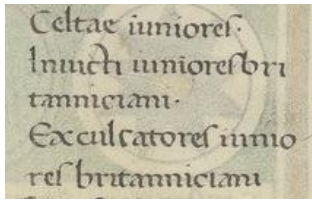 Celtae iuniores·
Inuicti iuniores bri
tanniciani·
Exculcatores iunio
res britanniciani